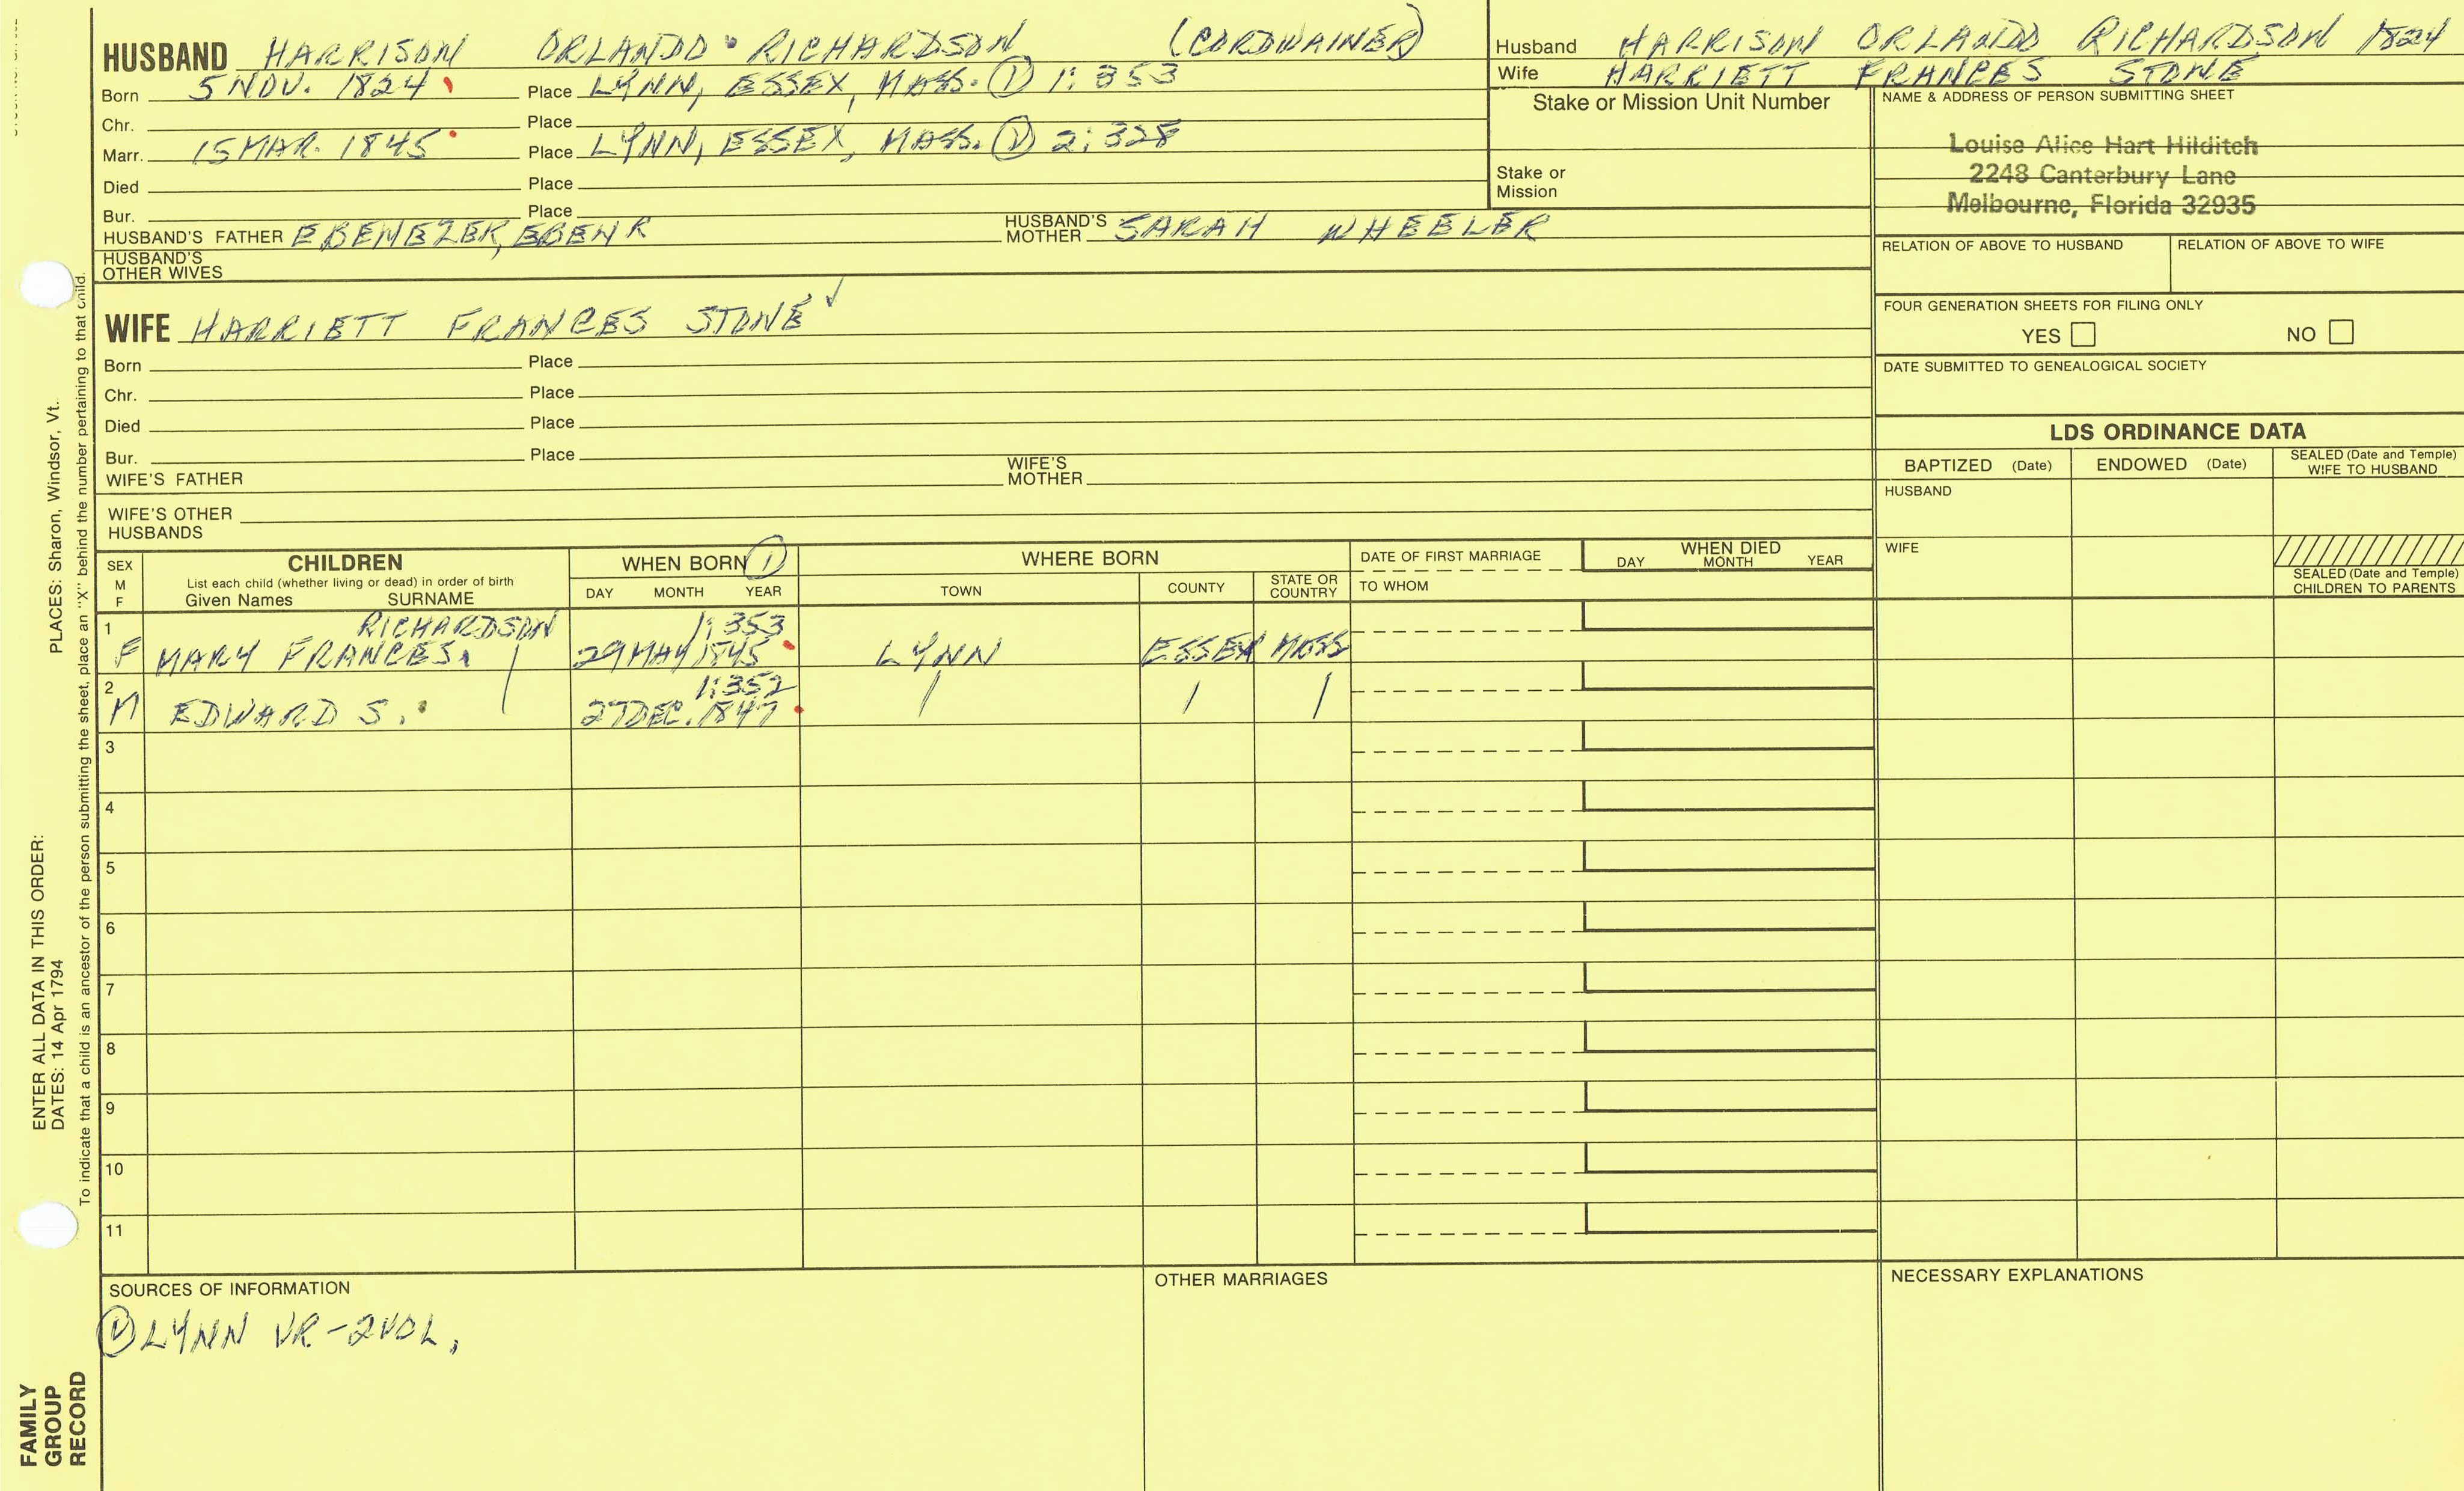 HUSBAND HARRISON ORLANDO RICHARDSON (CORDWAINER)
Born 5 NOV. 1824 Place LYNN, ESSEX, MASS. ① 1:353
Chr. Place
Marr. 15 MAR. 1845 Place LYNN, ESSEX, MASS. ① 2:328
Died Place
Bur. Place
HUSBAND'S FATHER EBENEZER, EBEN R HUSBAND'S MOTHER SARAH WHEELER
HUSBAND'S OTHER WIVES
Husband HARRISON ORLANDO RICHARDSON 1824
Wife HARRIETT FRANCES STONE
Stake or Mission Unit Number
Stake or Mission
NAME & ADDRESS OF PERSON SUBMITTING SHEET
Louise Alice Hart Hilditch
2248 Canterbury Lane
Melbourne, Florida 32935
RELATION OF ABOVE TO HUSBAND RELATION OF ABOVE TO WIFE
FOUR GENERATION SHEETS FOR FILING ONLY
YES NO
DATE SUBMITTED TO GENEALOGICAL SOCIETY
WIFE HARRIETT FRANCES STONE ✓
Born Place
Chr. Place
Died Place
Bur. Place
WIFE'S FATHER WIFE'S MOTHER
WIFE'S OTHER HUSBANDS
LDS ORDINANCE DATA
BAPTIZED (Date) ENDOWED (Date) SEALED (Date and Temple) WIFE TO HUSBAND
HUSBAND
WIFE
SEALED (Date and Temple) CHILDREN TO PARENTS
SEX M F
CHILDREN
List each child (whether living or dead) in order of birth
Given Names SURNAME
WHEN BORN ①
DAY MONTH YEAR
WHERE BORN
TOWN COUNTY STATE OR COUNTRY
DATE OF FIRST MARRIAGE
TO WHOM
WHEN DIED
DAY MONTH YEAR
1 RICHARDSON 1:353
F MARY FRANCES. 29 MAY 1845 LYNN ESSEX MASS
2 / 1:352 / / /
M EDWARD S. 27 DEC. 1847
3
4
5
6
7
8
9
10
11
SOURCES OF INFORMATION
① LYNN VR-2VOL.
OTHER MARRIAGES
NECESSARY EXPLANATIONS
ENTER ALL DATA IN THIS ORDER:
DATES: 14 Apr 1794 PLACES: Sharon, Windsor, Vt.
To indicate that a child is an ancestor of the person submitting the sheet, place an "X" behind the number pertaining to that child.
FAMILY
GROUP
RECORD